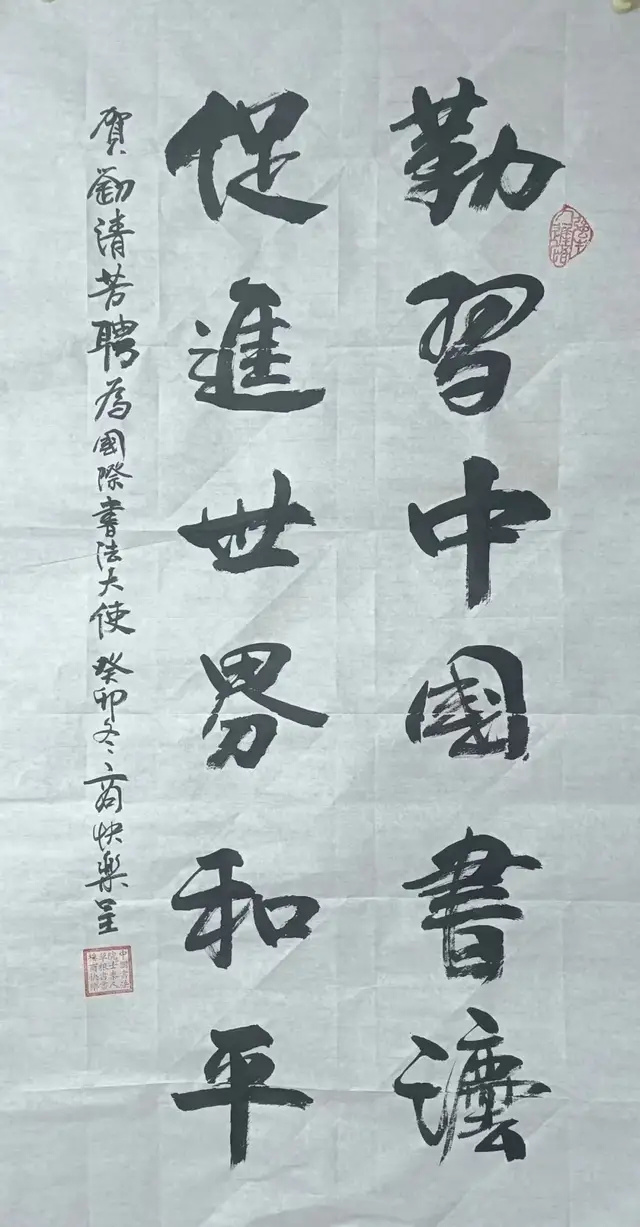 勤習中國書灋
促進世界和平
賀劉清芳聘為國際書法大使 癸卯冬 商快樂呈